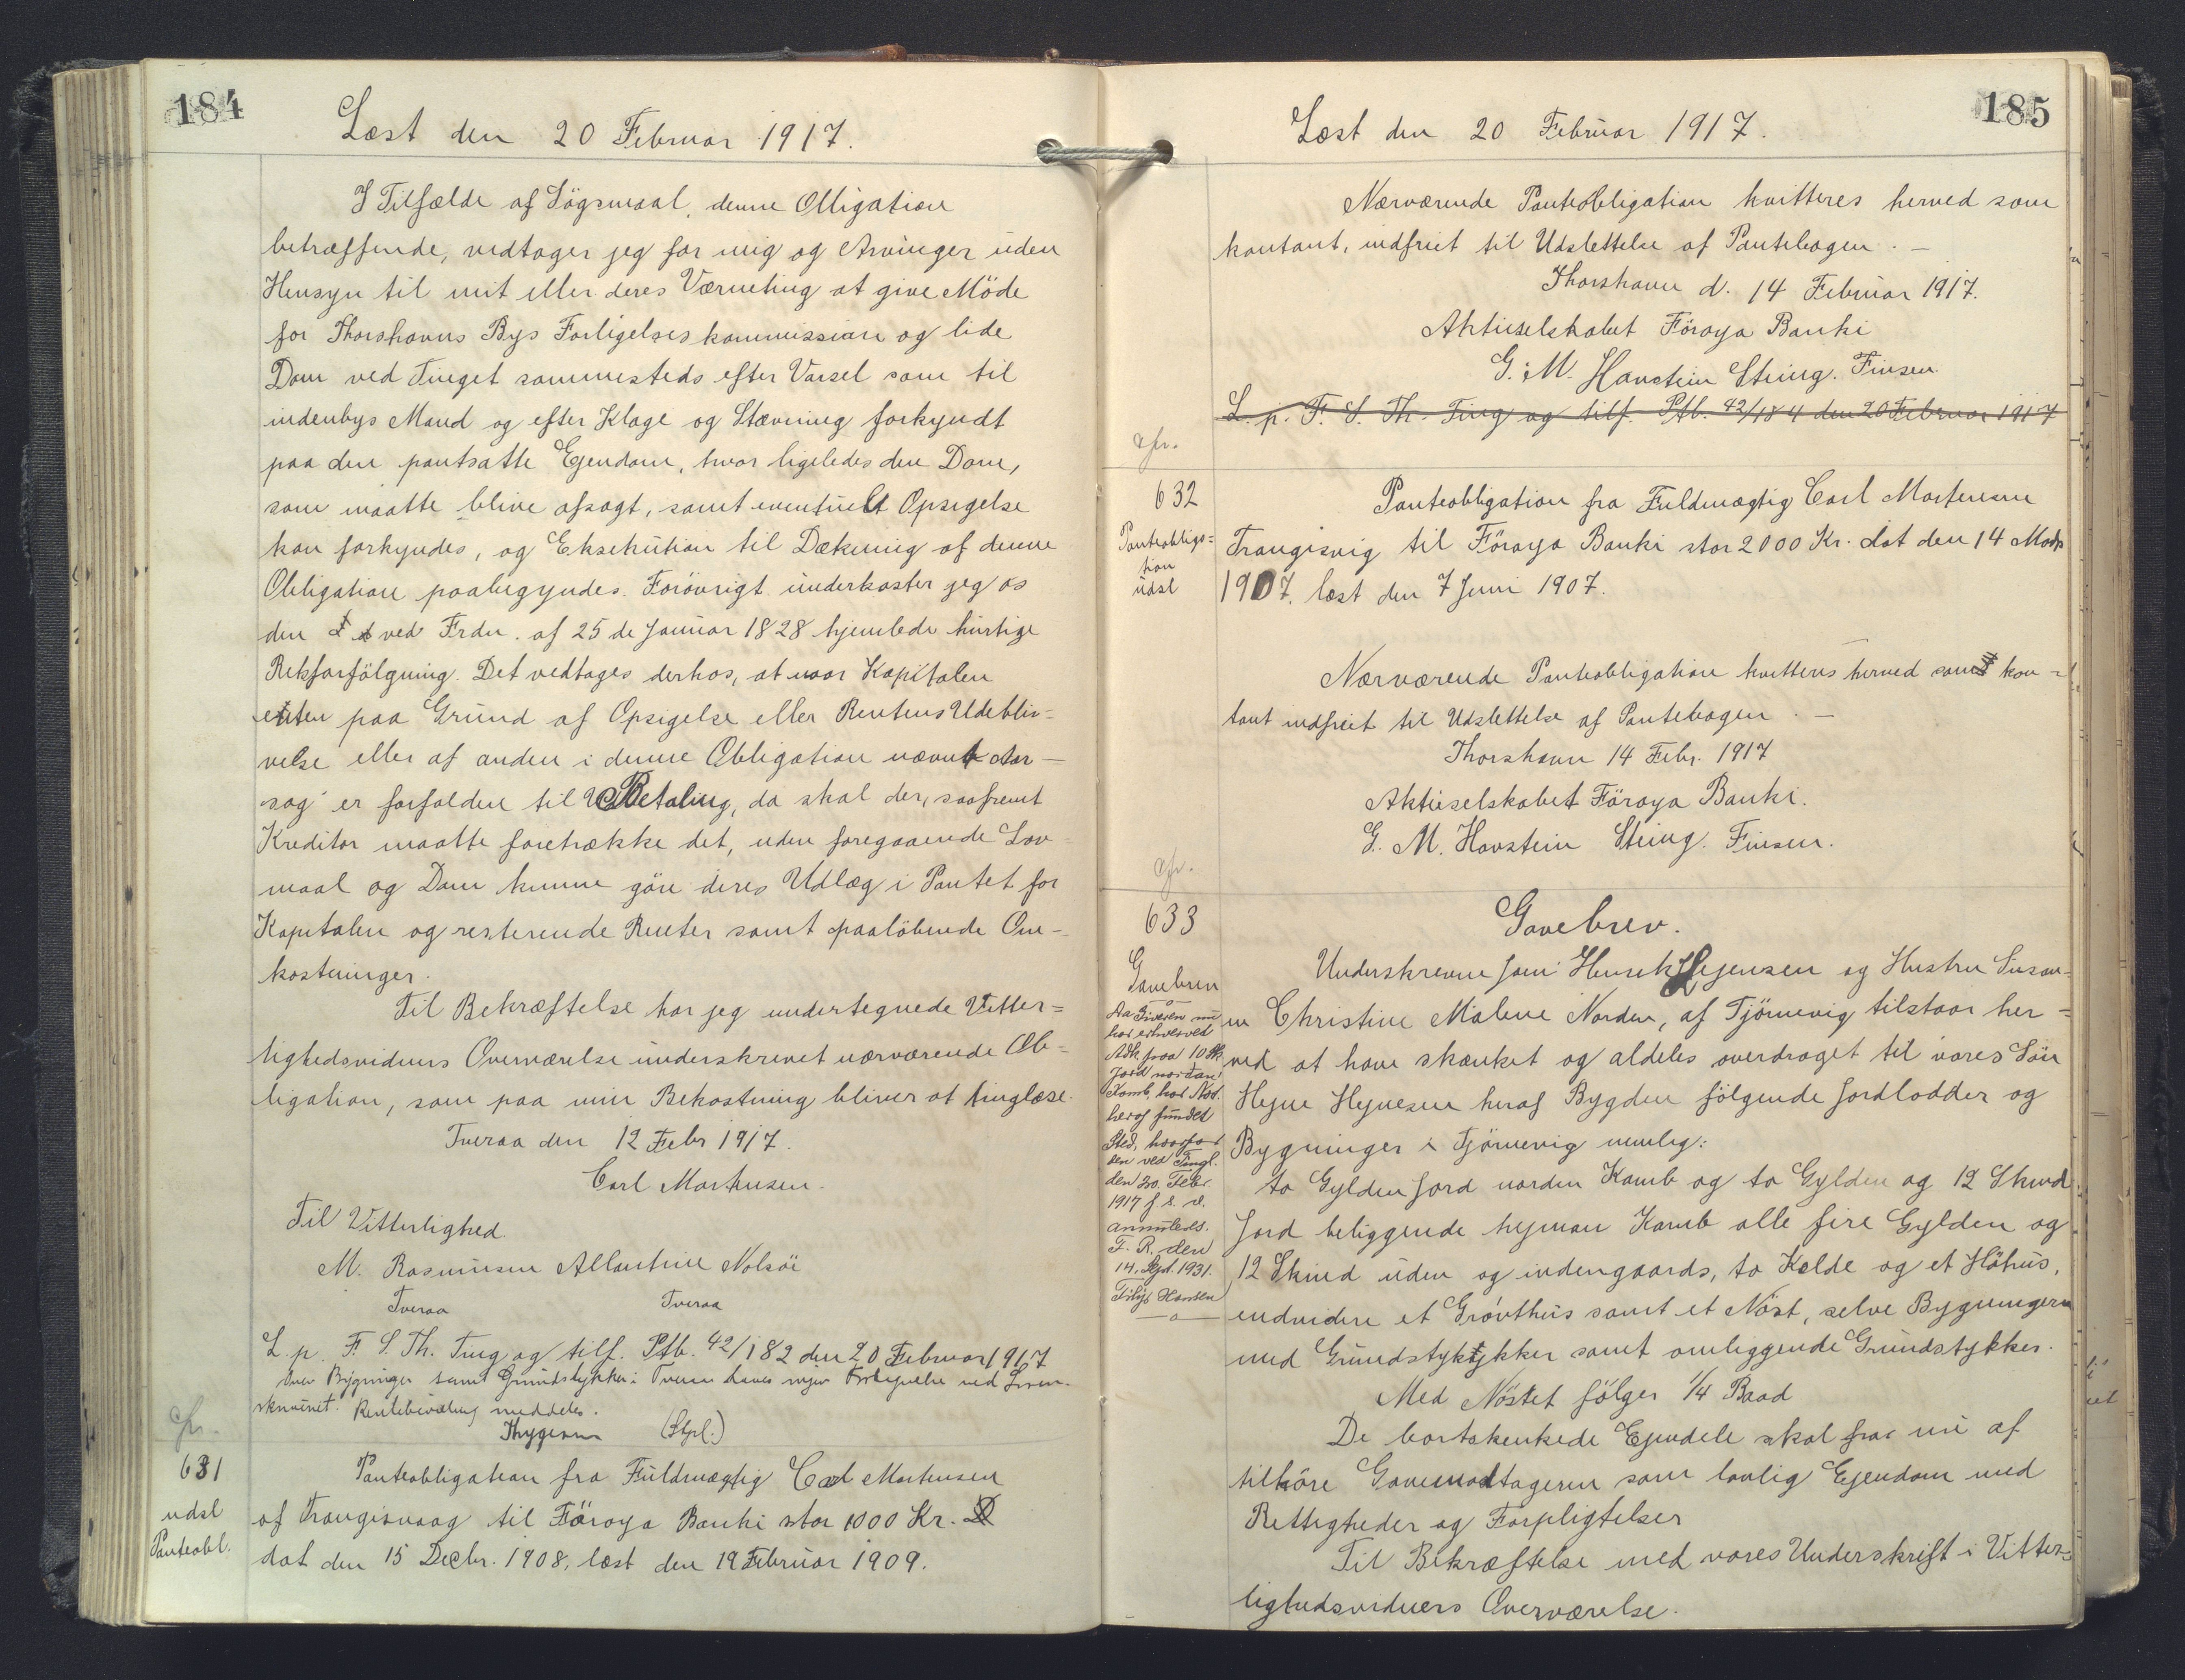 184
Læst den 20 Februar 1917.
I Tilfælde af Sögsmaal, denne Obligation
betræffende, vedtager jeg for mig og Arvinger uden
Hensyn til mit eller deres Værneting at give Möde
for Thorshavns Bys Forligelseskommission og lide
Dom ved Tinget sammesteds efter Varsel som til
indenbys Mand og efter Klage og Stævning forkyndt
paa den pantsatte Ejendom, hvor ligeledes den Dom,
som maatte blive afsagt, samt eventuelt Opsigelse
kan forkyndes, og Eksekution til Dækning af denne
Obligation paabegyndes. Forövrigt underkaster jeg os
den ved Frdn. af 25 de Januar 1828 hjemlede hurtige
Retsforfölgning. Det vedtages derhos, at naar Kapitalen
enten paa Grund af Opsigelse eller Rentens Udebli-
velse eller af anden i denne Obligation nævnt Aar-
sag er forfalden til Betaling, da skal der, saafremt
Kreditor maatte foretrække det, uden foregaaende Lov-
maal og Dom kunne göre deres Udlæg i Pantet for
Kapitalen og resterende Renter samt paalöbende Om-
kostninger.
Til Bekræftelse har jeg undertegnede Vitter=
lighedsvidners Overværelse underskrevet nærværende Ob=
ligation, som paa min Bekostning bliver at tinglæse.
Tveraa den 12 Febr 1917.
Carl Mortensen.
Til Vitterlighed
M. Rasmussen Allantine Nolsöe
Tveraa Tveraa
L. p. F. S. Th. Ting og tilf. Ptb. 42/182 den 20 Februar 1917
Over Bygninger samt Grundstykker i Tveraa haves ingen
meddeles.
Thygesen (Stpl.)
631
udsl
Panteobl.
Panteobligation fra Fuldmægtig Carl Mortensen
af Trangisvaag til Föroya Banki stor 1000 Kr.
dat den 15 Decbr. 1908, læst den 19 Februar 1909.
185
Læst den 20 Februar 1917.
Nærværende Panteobligation kvitteres herved som
kontant, indfriet til Udslettelse af Pantebogen. —
Thorshavn d. 14 Februar 1917.
Aktieselskabet Föroya Banki
G. M. Havstein Steing. Finsen.
L. p. F. S. Th. Ting og tilf. Ptb. 42/184 den 20 Februar 1917
632
Panteobliga=
tion
udsl
Panteobligation fra Fuldmægtig Carl Mortensen
Trangisvig til Föroya Banki stor 2000 Kr. dat den 14 Marts
1907, læst den 7 Juni 1907.
Nærværende Panteobligation kvitteres herved som kon=
tant indfriet til Udslettelse af Pantebogen. —
Thorshavn 14 Febr. 1917
Aktieselskabet Föroya Banki.
G. M. Havstein Steing. Finsen.
633
Gavebrev
Da Giveren nu
har erhvervet
Adk. paa 10 Sk.
Jord nordan
Kamb, har
heraf fundet
Sted, hvorfor
den ved Tingl.
den 20. Febr.
1917
annulleres.
F. R. den
14. Sept. 1931.
Hansen
—o—
Gavebrev.
Underskrevne Joen Henrik Hejnesen og Hustru Susan=
ne Christine Malene Norden, af Tjörnevig tilstaar her=
ved at have skænket og aldeles overdraget til vores Sön
Hejne Hejnesen heraf Bygden fölgende Jordlodder og
Bygninger i Tjörnevig nemlig:
to Gylden Jord norden Kamb og to Gylden og 12 Skind
Jord beliggende hejman Kamb alle fire Gylden og
12 Skind uden og indengaards, to Kelde og et Höhus,
endvidere et Grovthus samt et Nöst, selve Bygningerne
med Grundstykstykker samt omliggende Grundstykker.
Med Nöstet fölger 1/4 Baad
De bortskenkede Ejendele skal fra nu af
tilhöre Gavemodtageren som lovlig Ejendom med
Rettigheder og Forpligtelser
Til Bekræftelse med vores Underskrift i Vitter=
lighedsvidners Overværelse.